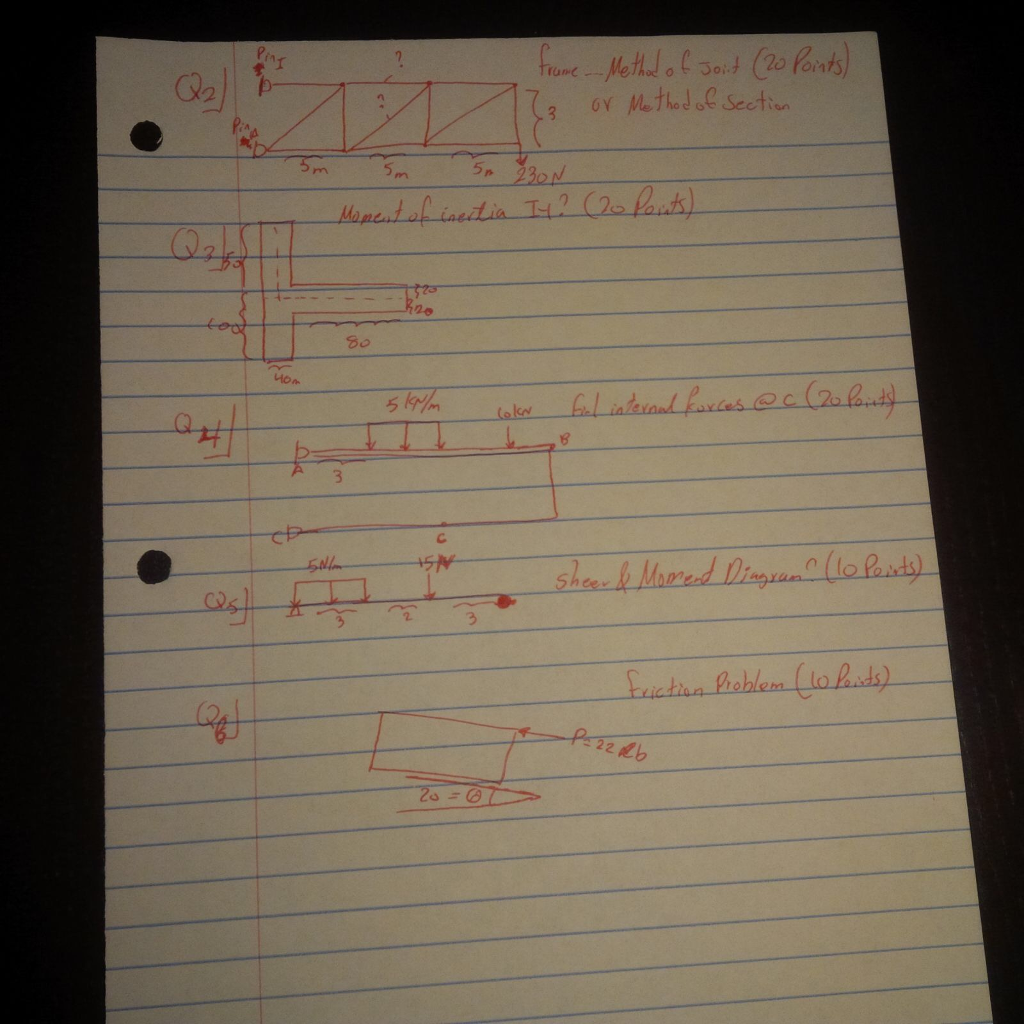 Pin I
?
Frame - Method of Joint (20 Points)
Q2
?
3
or Method of Section
Pin A
5m 5m 5m 230N
Moment of inertia Iy? (20 Points)
Q3
50
20
20
100
80
40m
5 kN/m
10kN
Find internal forces @ C (20 Points)
Q4
B
A
3
C
C
5N/m
15N
Sheer & Moment Diagram? (10 Points)
Q5
3 2 3
Friction Problem (10 Points)
Q6
P=22 lb
20 = Θ